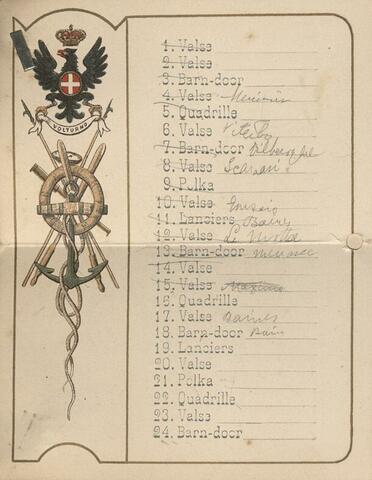 VOLTURNO
1. Valse
2. Valse
3. Barn-door
4. Valse
5. Quadrille
6. Valse
7. Barn-door
8. Valse
9. Polka
10. Valse
11. Lanciers
12. Valse
13. Barn-door
14. Valse
15. Valse
16. Quadrille
17. Valse Baines
18. Barn-door
19. Lanciers
20. Valse
21. Polka
22. Quadrille
23. Valse
24. Barn-door